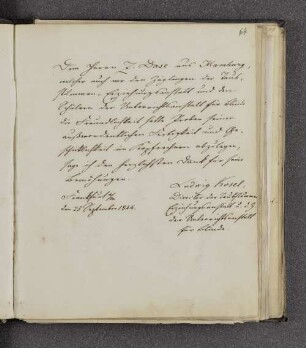 64
Dem Herrn Z. Dase aus Hamburg,
welcher auch vor den Zöglingen der Taub-
stummen-Erziehungsanstalt und den
Schülern der Unterrichtsanstalt für Blinde
die Freundlichkeit hatte Proben seiner
außerordentlichen Fertigkeit und Ge-
schicklichkeit im Kopfrechnen abzulegen,
sage ich den herzlichsten Dank für seine
Bemühungen.
Frankfurt a/m
den 25 September 1844.
Ludwig Kosel,
Director der Taubstummen
Erziehungsanstalt u. d. Z.
der Unterrichtsanstalt
für Blinde